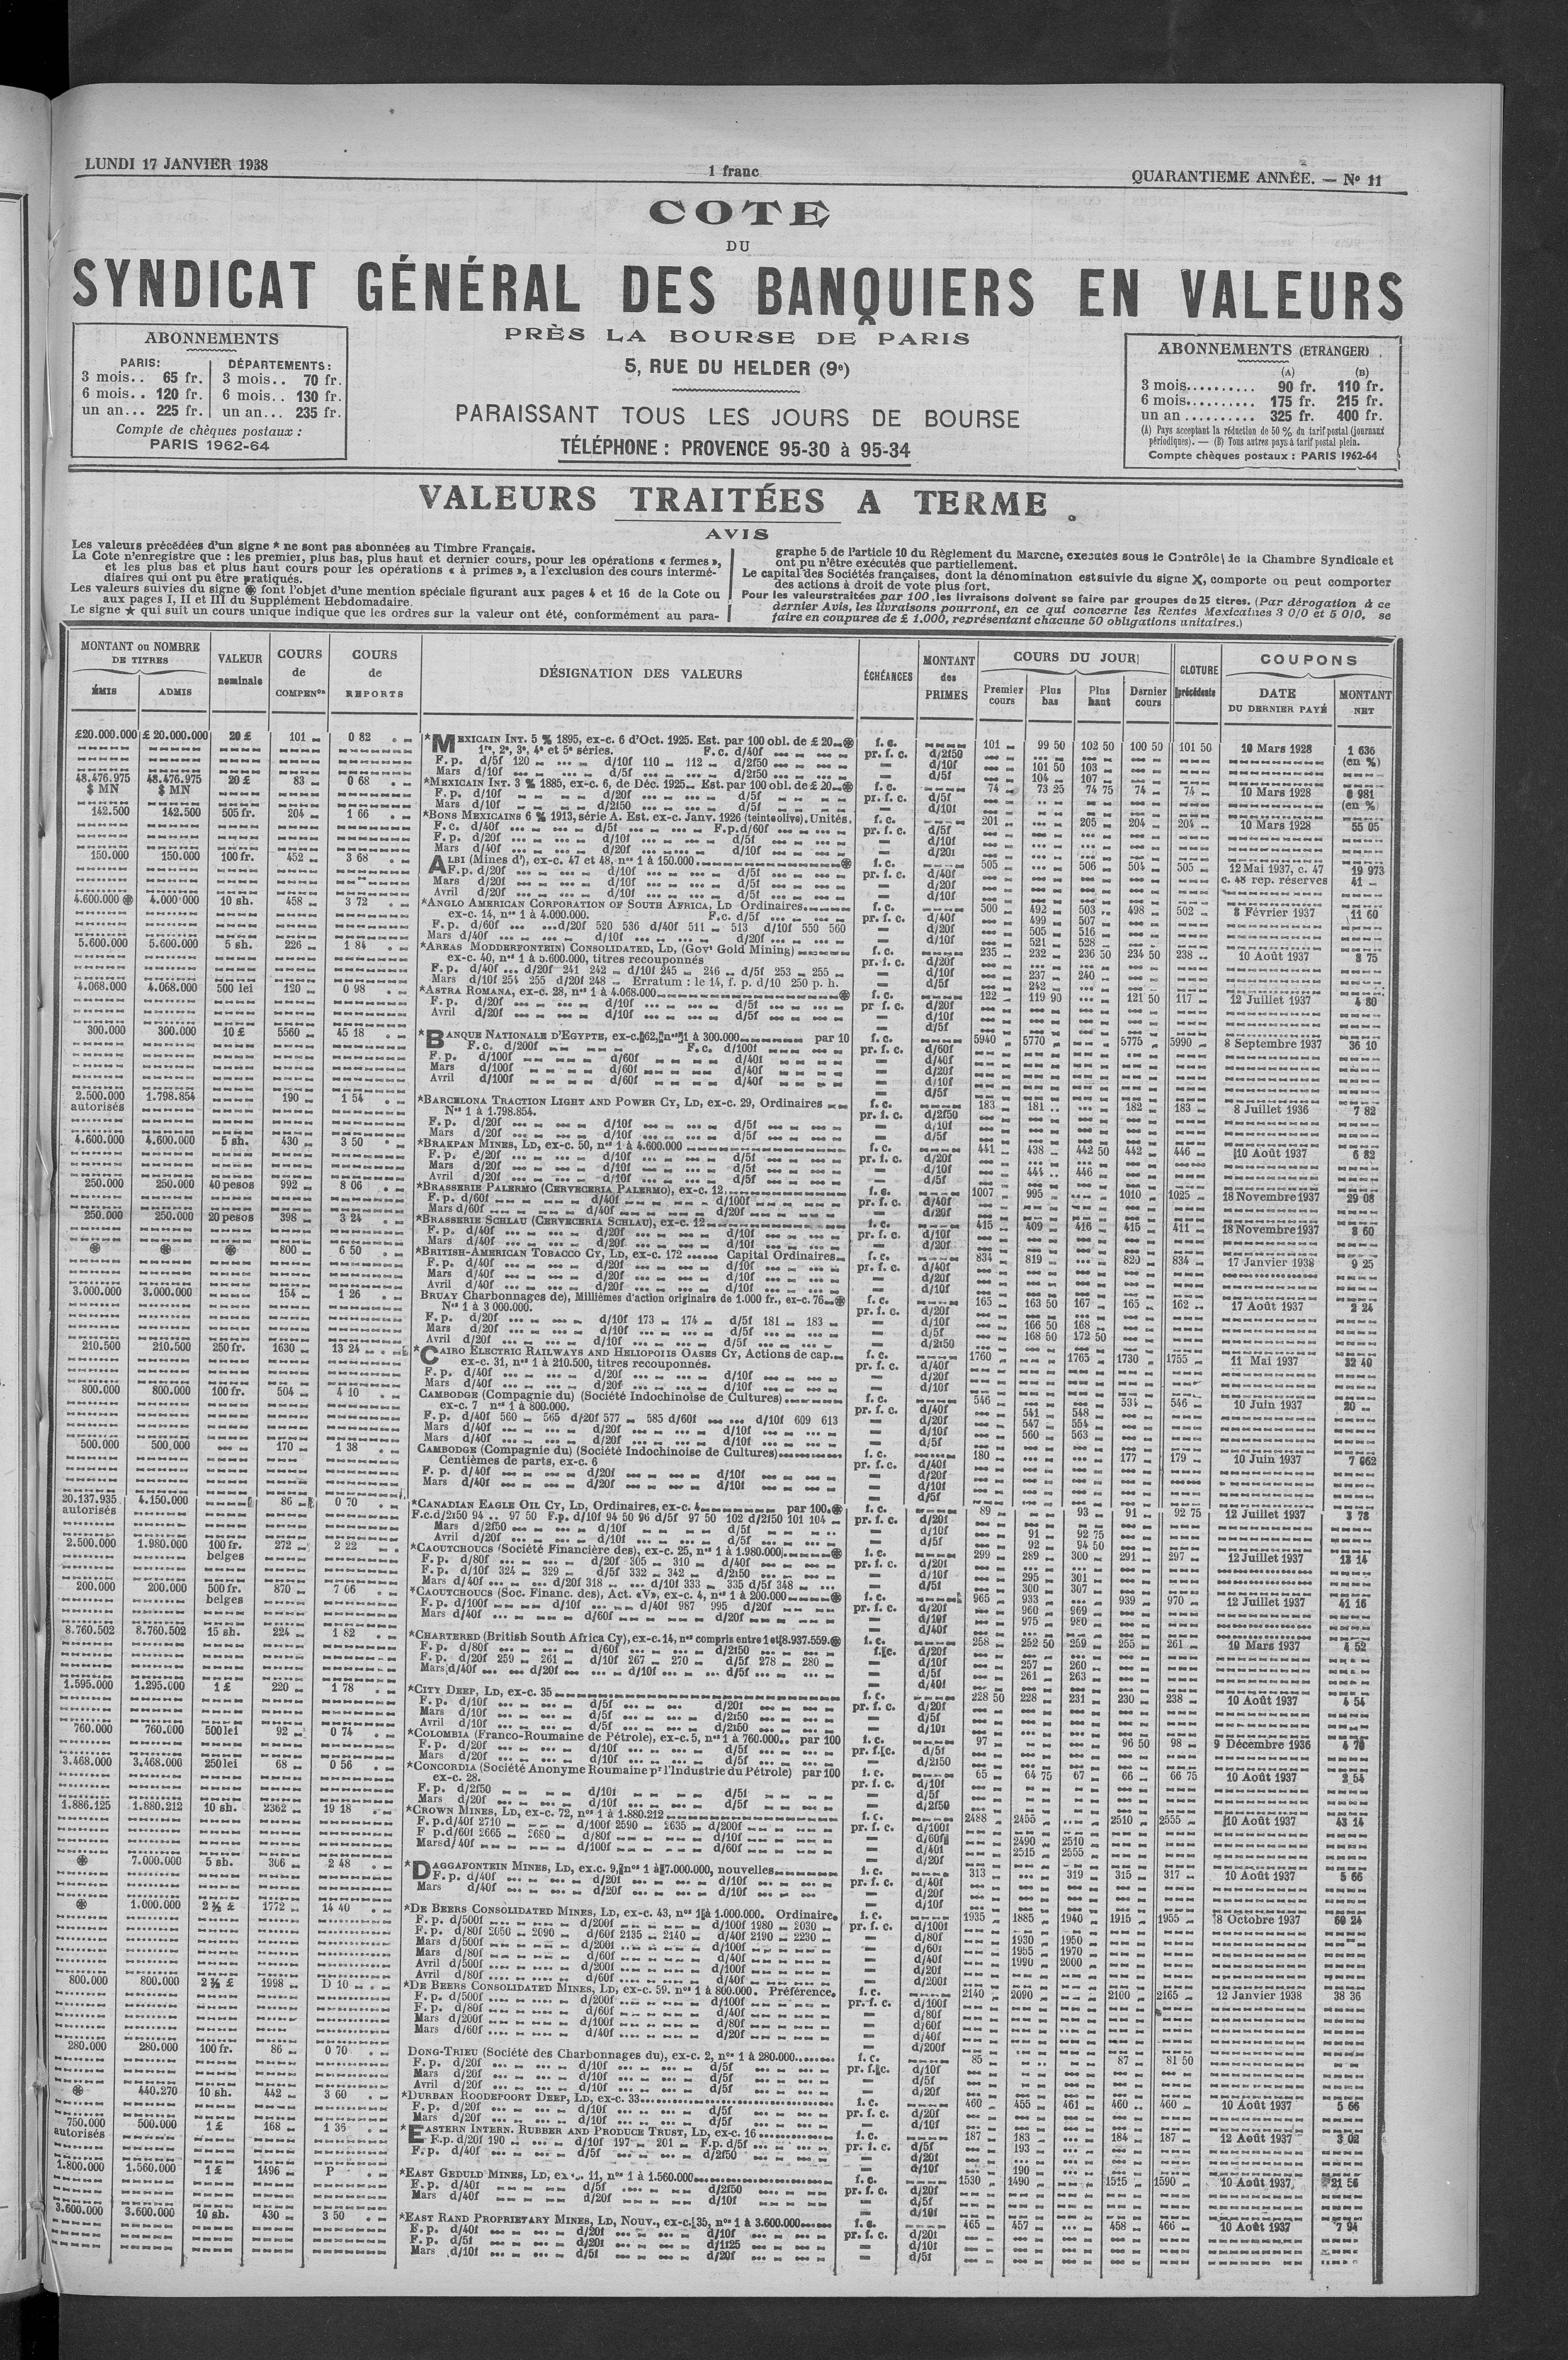 LUNDI 17 JANVIER 1938
1 franc
QUARANTIEME ANNÉE. — Nº 11
COTE
DU
SYNDICAT GÉNÉRAL DES BANQUIERS EN VALEURS
PRÈS LA BOURSE DE PARIS
5, RUE DU HELDER (9e)
PARAISSANT TOUS LES JOURS DE BOURSE
TÉLÉPHONE : PROVENCE 95-30 à 95-34
ABONNEMENTS
PARIS: DÉPARTEMENTS:
3 mois.. 65 fr. 3 mois.. 70 fr.
6 mois.. 120 fr. 6 mois.. 130 fr.
un an... 225 fr. un an... 235 fr.
Compte de chèques postaux :
PARIS 1962-64
ABONNEMENTS (ETRANGER)
(A) (B)
3 mois.......... 90 fr. 110 fr.
6 mois.......... 175 fr. 215 fr.
un an .......... 325 fr. 400 fr.
(A) Pays acceptant la réduction de 50 % du tarif postal (journaux
périodiques). — (B) Tous autres pays à tarif postal plein.
Compte chèques postaux : PARIS 1962-64
VALEURS TRAITÉES A TERME
AVIS
Les valeurs précédées d'un signe * ne sont pas abonnées au Timbre Français.
La Cote n'enregistre que : les premier, plus bas, plus haut et dernier cours, pour les opérations « fermes »,
et les plus bas et plus haut cours pour les opérations « à primes », a l'exclusion des cours intermé-
diaires qui ont pu être pratiqués.
Les valeurs suivies du signe ⊛ font l'objet d'une mention spéciale figurant aux pages 4 et 16 de la Cote ou
aux pages I, II et III du Supplément Hebdomadaire.
Le signe ★ qui suit un cours unique indique que les ordres sur la valeur ont été, conformément au para-
graphe 5 de l'article 10 du Règlement du Marche, executes sous le Contrôle de la Chambre Syndicale et
ont pu n'être exécutés que partiellement.
Le capital des Sociétés françaises, dont la dénomination est suivie du signe X, comporte ou peut comporter
des actions à droit de vote plus fort.
Pour les valeurs traitées par 100, les livraisons doivent se faire par groupes de 25 titres. (Par dérogation à ce
dernier Avis, les livraisons pourront, en ce qui concerne les Rentes Mexicaines 3 0/0 et 5 0/0, se
faire en coupures de £ 1.000, représentant chacune 50 obligations unitaires.)
MONTANT ou NOMBRE DE TITRES
ÉMIS ADMIS
VALEUR nominale
COURS de COMPENon
COURS de REPORTS
DÉSIGNATION DES VALEURS
ÉCHÉANCES
MONTANT des PRIMES
COURS DU JOUR
Premier cours Plus bas Plus haut Dernier cours
CLOTURE précédente
COUPONS
DATE DU DERNIER PAYÉ
MONTANT NET
£20.000.000 £ 20.000.000 20 £ 101 0 82 *MEXICAIN INT. 5 % 1895, ex-c. 6 d'Oct. 1925. Est. par 100 obl. de £ 20 ⊛ f. c. 101 99 50 102 50 100 50 101 50 10 Mars 1928 1 636
1re, 2e, 3e, 4e et 5e séries. F.c. d/40f pr. f. c. d/2f50 (en %)
F. p. d/5f 120 d/10f 110 112 d/2f50 d/10f 101 50 103
Mars d/10f d/5f d/2f50 d/5f 104 107
48.476.975 48.476.975 20 £ 83 0 68 *MEXICAIN INT. 3 % 1885, ex-c. 6, de Déc. 1925 Est. par 100 obl. de £ 20 ⊛ f. c. 74 73 25 74 75 74 74 10 Mars 1928 0 981
$ MN $ MN F. p. d/10f d/20f d/5f pr. f. c. d/5f (en %)
Mars d/10f d/2f50 d/5f d/10f
142.500 142.500 505 fr. 204 1 66 *BONS MEXICAINS 6 % 1913, série A. Est. ex-c. Janv. 1926 (teinte olive). Unités. f. c. 201 205 204 204 10 Mars 1928 55 05
F. c. d/40f d/5f F.p. d/60f pr. f. c. d/5f
F. p. d/20f d/10f d/5f d/10f
Mars d/40f d/20f d/10f d/20f
150.000 150.000 100 fr. 452 3 68 ALBI (Mines d'), ex-c. 47 et 48, nos 1 à 150.000 ⊛ f. c. 505 506 504 505 12 Mai 1937, c. 47 19 973
F. p. d/20f d/10f d/5f pr. f. c. d/40f c. 48 rep. réserves 41
Mars d/20f d/10f d/5f d/20f
Avril d/20f d/10f d/5f d/10f
4.600.000 ⊛ 4.000.000 10 sh. 458 3 72 *ANGLO AMERICAN CORPORATION OF SOUTH AFRICA, LD Ordinaires f. c. 500 492 503 498 502 8 Février 1937 11 60
ex-c. 14, nos 1 à 4.000.000. F.c. d/5f pr. f. c. d/40f 499 507
F. p. d/60f d/20f 520 536 d/40f 511 513 d/10f 550 560 d/20f 505 516
Mars d/40f d/10f d/20f d/10f 521 528
5.600.000 5.600.000 5 sh. 226 1 84 *AREAS MODDERFONTEIN) CONSOLIDATED, LD, (Govt Gold Mining) f. c. 235 232 236 50 234 50 238 10 Août 1937 3 75
ex-c. 40, nos 1 à 5.600.000, titres recouponnés pr. f. c. d/20f
F. p. d/40f d/20f 241 242 d/10f 245 246 d/5f 253 255 d/10f 237 240
Mars d/10f 254 255 d/20f 248 Erratum : le 14, f. p. d/10 250 p. h. d/5f 242
4.068.000 4.068.000 500 lei 120 0 98 *ASTRA ROMANA, ex-c. 28, nos 1 à 4.068.000 ⊛ f. c. 122 119 90 121 50 117 12 Juillet 1937 4 80
F. p. d/20f d/10f d/5f pr f. c. d/20f
Avril d/20f d/10f d/5f d/10f
d/5f
300.000 300.000 10 £ 5560 45 18 *BANQUE NATIONALE D'EGYPTE, ex-c. 62, nos 1 à 300.000 par 10 f. c. 5940 5770 5775 5990 8 Septembre 1937 36 10
F. c. d/200f F.c. d/100f pr. f. c. d/60f
F. p. d/100f d/60f d/40f d/40f
Mars d/100f d/60f d/40f d/20f
Avril d/100f d/60f d/40f d/10f
d/5f
2.500.000 1.798.854 190 1 54 *BARCELONA TRACTION LIGHT AND POWER CY, LD, ex-c. 29, Ordinaires f. c. 183 181 182 183 8 Juillet 1936 7 82
autorisés Nos 1 à 1.798.854. pr. f. c. d/2f50
F. p. d/20f d/10f d/5f d/10f
Mars d/20f d/10f d/5f d/5f
4.600.000 4.600.000 5 sh. 430 3 50 *BRAKPAN MINES, LD, ex-c. 50, nos 1 à 4.600.000 f. c. 441 438 442 50 442 446 10 Août 1937 6 82
F. p. d/20f d/10f d/5f pr. f. c. d/20f
Mars d/20f d/10f d/5f d/10f 444 446
Avril d/20f d/10f d/5f d/5f
250.000 250.000 40 pesos 992 8 06 *BRASSERIE PALERMO (CERVECERIA PALERMO), ex-c. 12 f. c. 1007 995 1010 1025 18 Novembre 1937 29 08
F. p. d/60f d/40f d/100f pr. f. c. d/40f
Mars d/60f d/40f d/20f d/20f
250.000 250.000 20 pesos 398 3 24 *BRASSERIE SCHLAU (CERVECERIA SCHLAU), ex-c. 12 f. c. 415 409 416 415 411 18 Novembre 1937 8 60
F. p. d/40f d/20f d/10f pr. f. c. d/10f
Mars d/40f d/20f d/10f d/20f
⊛ ⊛ ⊛ 800 6 50 *BRITISH-AMERICAN TOBACCO CY, LD, ex-c. 172 Capital Ordinaires f. c. 834 819 820 834 17 Janvier 1938 9 25
F. p. d/40f d/20f d/10f pr. f. c. d/40f
Mars d/40f d/20f d/10f d/20f
Avril d/40f d/20f d/10f d/10f
3.000.000 3.000.000 154 1 26 BRUAY Charbonnages de), Millièmes d'action originaire de 1.000 fr., ex-c. 76 ⊛ f. c. 165 163 50 167 165 162 17 Août 1937 2 24
Nos 1 à 3 000.000. pr. f. c. d/20f
F. p. d/20f d/10f 173 174 d/5f 181 183 d/10f 166 50 168
Mars d/20f d/10f d/5f d/5f 168 50 172 50
Avril d/20f d/10f d/5f d/2f50
210.500 210.500 250 fr. 1630 13 24 *CAIRO ELECTRIC RAILWAYS AND HELIOPOLIS OASES CY, Actions de cap. f. c. 1760 1765 1730 1755 11 Mai 1937 32 40
ex-c. 31, nos 1 à 210.500, titres recouponnés. pr. f. c. d/40f
F. p. d/40f d/20f d/10f d/20f
Mars d/40f d/20f d/10f d/10f
800.000 800.000 100 fr. 504 4 10 CAMBODGE (Compagnie du) (Société Indochinoise de Cultures) f. c. 546 534 546 10 Juin 1937 20
ex-c. 7 nos 1 à 800.000. pr. f. c. d/40f 541 548
F. p. d/40f 560 565 d/20f 577 585 d/60f d/10f 609 613 d/20f 547 554
Mars d/40f d/20f d/10f d/10f 560 563
Mars d/40f d/20f d/10f d/5f
500.000 500.000 170 1 38 CAMBODGE (Compagnie du) (Société Indochinoise de Cultures) f. c. 180 177 179 10 Juin 1937 7 662
Centièmes de parts, ex-c. 6 pr. f. c. d/40f
F. p. d/40f d/20f d/10f d/20f
Mars d/40f d/20f d/10f d/10f
d/5f
20.137.935 4.150.000 86 0 70 *CANADIAN EAGLE OIL CY, LD, Ordinaires, ex-c. 4 par 100 ⊛ f. c. 89 93 91 92 75 12 Juillet 1937 3 78
autorisés F.c. d/2f50 94 97 50 F.p. d/10f 94 50 96 d/5f 97 50 102 d/2f50 101 104 pr. f. c. d/20f
Mars d/2f50 d/10f d/5f d/10f 91 92 75
Avril d/20f d/10f d/5f d/5f 92 94 50
2.500.000 1.980.000 100 fr. belges 272 2 22 *CAOUTCHOUCS (Société Financière des), ex-c. 25, nos 1 à 1.980.000 ⊛ f. c. 299 289 300 291 297 12 Juillet 1937 13 14
F. p. d/80f d/20f 305 310 d/40f pr. f. c. d/20f
F. p. d/10f 324 329 d/5f 332 342 d/2f50 d/10f 295 301
Mars d/40f d/20f 318 d/10f 333 335 d/5f 348 d/5f 300 307
200.000 200.000 500 fr. belges 870 7 06 *CAOUTCHOUCS (Soc. Financ. des), Act. «V», ex-c. 4, nos 1 à 200.000 ⊛ f. c. 965 933 939 970 12 Juillet 1937 41 16
F. p. d/100f d/10f d/40f 987 995 d/20f pr. f. c. d/20f 960 969
Mars d/40f d/60f d/20f d/10f 975 980
d/40f
8.760.502 8.760.502 15 sh. 224 1 82 *CHARTERED (British South Africa Cy), ex-c. 14, nos compris entre 1 et 8.937.559 ⊛ f. c. 258 252 50 259 255 261 10 Mars 1937 4 52
F. p. d/80f d/60f d/2f50 f. c. d/20f
F. p. d/20f 259 261 d/10f 267 270 d/5f 278 280 d/10f 257 260
Mars d/40f d/20f d/10f d/5f d/5f 261 263
d/40f
1.595.000 1.295.000 1 £ 220 1 78 *CITY DEEP, LD, ex-c. 35 f. c. 228 50 228 231 230 238 10 Août 1937 4 54
F. p. d/10f d/5f d/20f pr. f. c. d/20f
Mars d/10f d/5f d/2f50 d/5f
Avril d/10f d/5f d/2f50 d/10f
760.000 760.000 500 lei 92 0 74 *COLOMBIA (Franco-Roumaine de Pétrole), ex-c. 5, nos 1 à 760.000 par 100 f. c. 97 96 50 98 9 Décembre 1936 4 70
F. p. d/20f d/10f d/5f pr. f. c. d/5f
Mars d/20f d/10f d/5f d/2f50
3.468.000 3.468.000 250 lei 68 0 56 *CONCORDIA (Société Anonyme Roumaine pr l'Industrie du Pétrole) par 100 f. c. 65 64 75 67 66 66 75 10 Août 1937 2 54
ex-c. 28. pr. f. c. d/10f
F. p. d/2f50 d/10f d/5f d/5f
Mars d/20f d/10f d/5f d/2f50
1.886.125 1.880.212 10 sh. 2362 19 18 *CROWN MINES, LD, ex-c. 72, nos 1 à 1.880.212 f. c. 2488 2455 2510 2555 10 Août 1937 43 14
F. p. d/40f 2710 d/100f 2590 2635 d/200f pr. f. c. d/100f
F p. d/60f 2665 2680 d/80f d/10f d/60f 2490 2510
Mars d/40f d/100f d/60f d/40f 2515 2555
d/20f
⊛ 7.000.000 5 sh. 306 2 48 *DAGGAFONTEIN MINES, LD, ex.c. 9, nos 1 à 7.000.000, nouvelles f. c. 313 319 315 317 10 Août 1937 5 66
F. p. d/40f d/20f d/10f pr. f. c. d/40f
Mars d/40f d/20f d/10f d/20f
d/10f
⊛ 1.000.000 2 ½ £ 1772 14 40 *DE BEERS CONSOLIDATED MINES, LD, ex-c. 43, nos 1 à 1.000.000. Ordinaire. f. c. 1935 1885 1940 1915 1955 8 Octobre 1937 60 24
F. p. d/500f d/200f d/100f 1980 2030 pr. f. c. d/100f
F. p. d/80f 2050 2090 d/60f 2135 2140 d/40f 2190 2230 d/80f 1930 1950
Mars d/500f d/200f d/100f d/60f 1955 1970
Mars d/80f d/60f d/40f d/40f 1990 2000
Avril d/500f d/200f d/100f d/20f
Avril d/80f d/60f d/40f d/200f
800.000 800.000 2 ½ £ 1998 D 10 *DE BEERS CONSOLIDATED MINES, LD, ex-c. 59. nos 1 à 800.000. Préférence. f. c. 2140 2090 2100 2165 12 Janvier 1938 38 36
F. p. d/500f d/200f d/100f pr. f. c. d/100f
F. p. d/80f d/60f d/40f d/80f
Mars d/200f d/100f d/80f d/60f
Mars d/60f d/40f d/20f d/40f
d/200f
280.000 280.000 100 fr. 86 0 70 DONG-TRIEU (Société des Charbonnages du), ex-c. 2, nos 1 à 280.000 f. c. 85 87 81 50
F. p. d/20f d/10f d/5f pr. f. c. d/10f
Mars d/20f d/10f d/5f d/5f
Avril d/20f d/10f d/5f d/20f
⊛ 440.270 10 sh. 442 3 60 *DURBAN ROODEPOORT DEEP, LD, ex-c. 33 f. c. 460 455 461 460 460 10 Août 1937 5 66
F. p. d/20f d/10f d/5f pr. f. c. d/20f
Mars d/20f d/10f d/5f d/10f
750.000 500.000 1 £ 168 1 36 *EASTERN INTERN. RUBBER AND PRODUCE TRUST, LD, ex-c. 16 f. c. 187 183 184 187 12 Août 1937 3 02
autorisés F.p. d/20f 190 d/10f 197 201 F.p. d/5f pr. f. c. d/5f 193
F. p. d/40f d/5f d/2f50 d/20f
d/10f 190
1.800.000 1.560.000 1 £ 1496 P *EAST GEDULD MINES, LD, ex-c. 11, nos 1 à 1.560.000 f. c. 1530 1490 1515 1590 10 Août 1937 21 56
F. p. d/40f d/5f d/2f50 pr. f. c. d/20f
Mars d/40f d/20f d/10f d/5f
d/10f
3.600.000 3.600.000 10 sh. 430 3 50 *EAST RAND PROPRIETARY MINES, LD, Nouv., ex-c. 35, nos 1 à 3.600.000 f. c. 465 457 458 466 10 Août 1937 7 94
F. p. d/40f d/20f d/10f pr. f. c. d/20f
F. p. d/5f d/20f d/1f25 d/10f
Mars d/10f d/5f d/20f d/5f